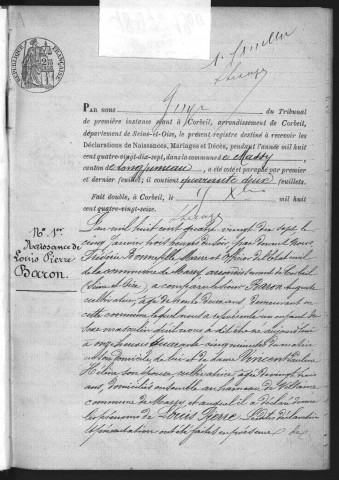 RÉPUBLIQUE FRANÇAISE
PAR nous Juge du Tribunal
de première instance séant à Corbeil, arrondissement de Corbeil,
département de Seine-et-Oise, le présent registre destiné à recevoir les
Déclarations de Naissances, Mariages et Décès, pendant l'année mil huit
cent quatre-vingt-dix-sept, dans la commune de Massy
canton de Longjumeau, a été coté et paraphé par premier
et dernier feuillet; il contient quarante deux feuillets.
Fait double, à Corbeil, le mil huit
cent quatre-vingt-seize.
N° 1er
Naissance de
Louis Pierre
Baron.
L'an mil huit cent quatre vingt dix sept le
cinq janvier trois heures du soir, par devant Nous
Maire et Officier de l'état civil
de la commune de Massy arrondissement de Corbeil
(Seine et Oise) a comparu le sieur Baron Auguste
cultivateur, âgé de trente deux ans demeurant en
cette commune lequel nous a présenté un enfant du
sexe masculin qu'il nous a dit être né aujourd'hui
à onze heures cinq minutes du matin
en son domicile, de lui et de dame Vincent
Hélène son épouse, cultivatrice, âgée de vingt trois
ans, domiciliés ensemble au hameau de Villaine
commune de Massy et auquel il a déclaré donner
les prénoms de Louis Pierre. Lesdites déclaration
et présentation ont été faites en présence de